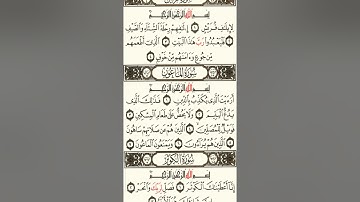 بِسْمِ اللَّهِ الرَّحْمَٰنِ الرَّحِيمِ
لِإِيلَافِ قُرَيْشٍ ۝ إِيلَافِهِمْ رِحْلَةَ الشِّتَاءِ وَالصَّيْفِ
۝ فَلْيَعْبُدُوا رَبَّ هَٰذَا الْبَيْتِ ۝ الَّذِي أَطْعَمَهُم
مِّن جُوعٍ وَآمَنَهُم مِّنْ خَوْفٍ ۝
سُورَةُ الْمَاعُونِ
بِسْمِ اللَّهِ الرَّحْمَٰنِ الرَّحِيمِ
أَرَأَيْتَ الَّذِي يُكَذِّبُ بِالدِّينِ ۝ فَذَٰلِكَ الَّذِي
يَدُعُّ الْيَتِيمَ ۝ وَلَا يَحُضُّ عَلَىٰ طَعَامِ الْمِسْكِينِ ۝
فَوَيْلٌ لِّلْمُصَلِّينَ ۝ الَّذِينَ هُمْ عَن صَلَاتِهِمْ سَاهُونَ
۝ الَّذِينَ هُمْ يُرَاءُونَ ۝ وَيَمْنَعُونَ الْمَاعُونَ ۝
سُورَةُ الْكَوْثَرِ
بِسْمِ اللَّهِ الرَّحْمَٰنِ الرَّحِيمِ
إِنَّا أَعْطَيْنَاكَ الْكَوْثَرَ ۝ فَصَلِّ لِرَبِّكَ وَانْحَرْ